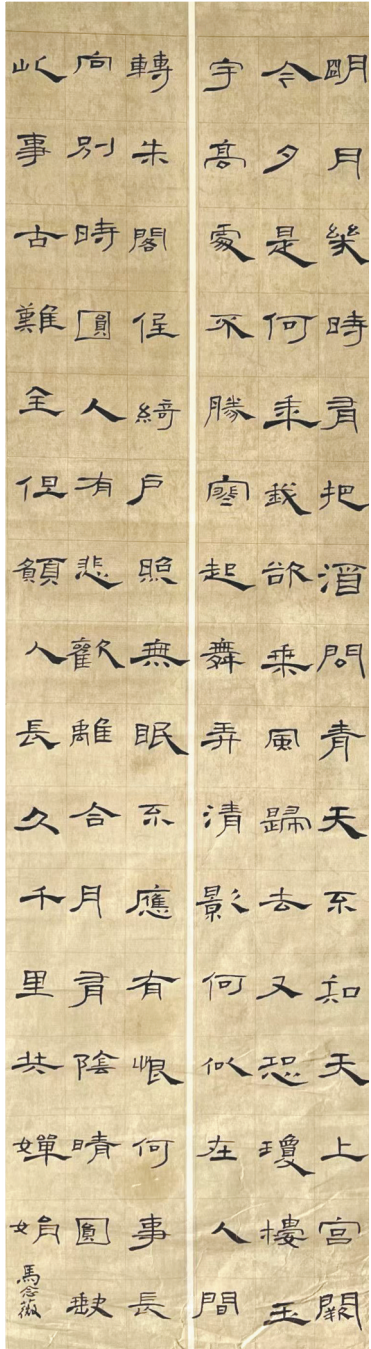 明月幾時有把酒問青天不知天上宮闕
今夕是何年我欲乘風歸去又恐瓊樓玉
宇高處不勝寒起舞弄清影何似在人間
轉朱閣低綺戶照無眠不應有恨何事長
向別時圓人有悲歡離合月有陰晴圓缺
此事古難全但願人長久千里共嬋娟
馬念薇